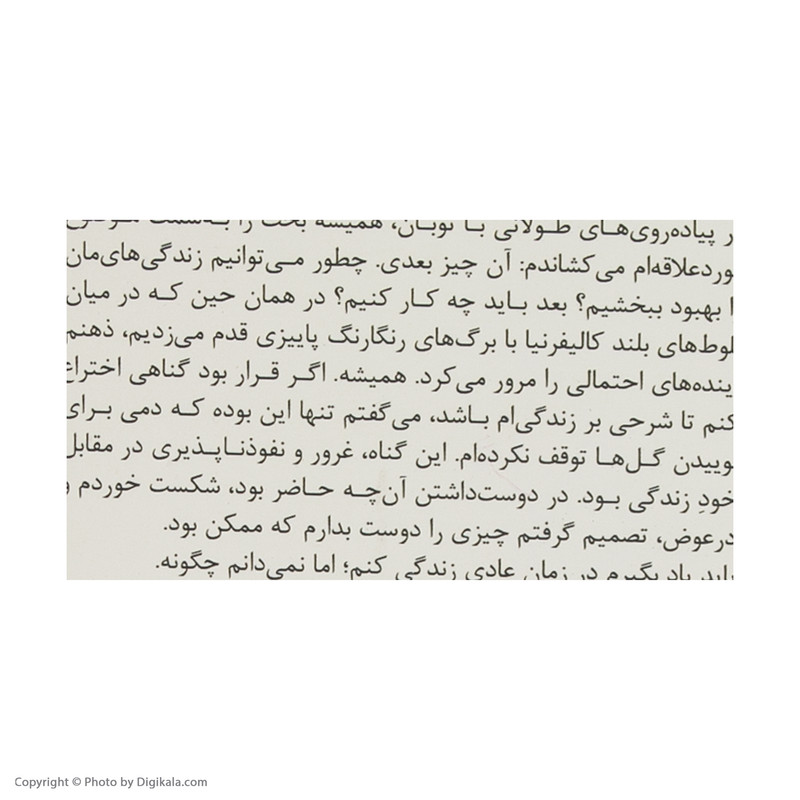 ر پیاده‌روی‌های طولانی با توبان، همیشه بحث را به‌سمت موضوع
وردعلاقه‌ام می‌کشاندم: آن چیز بعدی. چطور می‌توانیم زندگی‌های‌مان
ا بهبود ببخشیم؟ بعد باید چه کار کنیم؟ در همان حین که در میان
لوط‌های بلند کالیفرنیا با برگ‌های رنگارنگ پاییزی قدم می‌زدیم، ذهنم
ینده‌های احتمالی را مرور می‌کرد. همیشه. اگر قرار بود گناهی اختراع
کنم تا شرحی بر زندگی‌ام باشد، می‌گفتم تنها این بوده که دمی برای
وییدن گل‌ها توقف نکرده‌ام. این گناه، غرور و نفوذناپذیری در مقابل
خودِ زندگی بود. در دوست‌داشتن آن‌چه حاضر بود، شکست خوردم و
درعوض، تصمیم گرفتم چیزی را دوست بدارم که ممکن بود.
باید یاد بگیرم در زمان عادی زندگی کنم؛ اما نمی‌دانم چگونه.
Copyright © Photo by Digikala.com